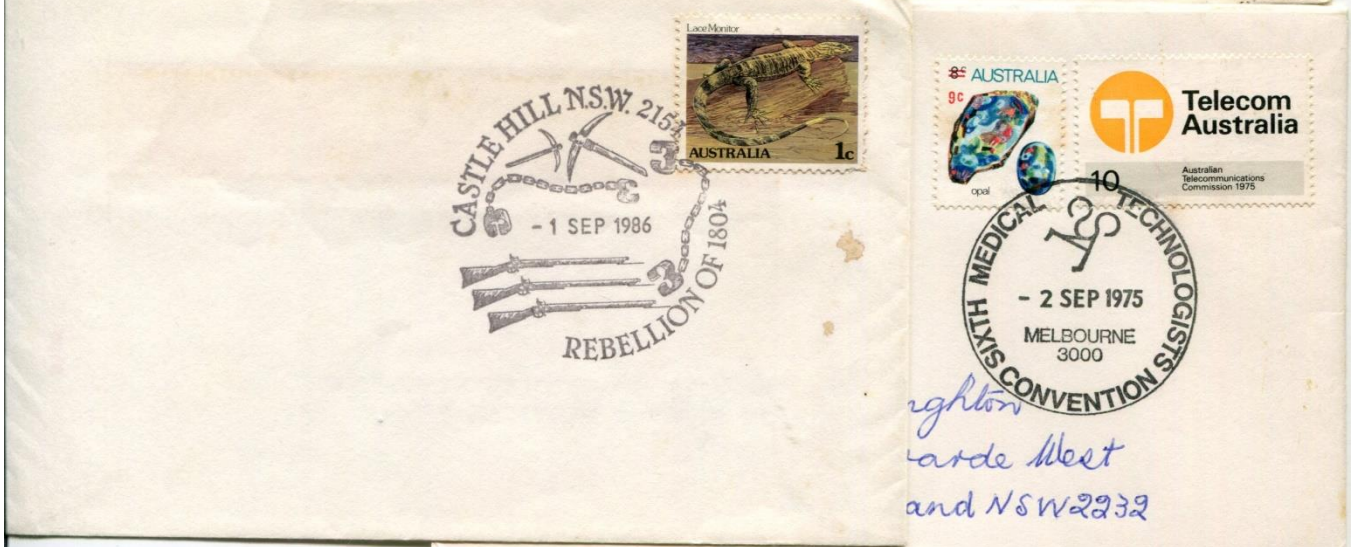 Lace Monitor
AUSTRALIA 1c
CASTLE HILL N.S.W. 2154
- 1 SEP 1986
REBELLION OF 1804
8c AUSTRALIA
9c
opal
Telecom
Australia
Australian
Telecommunications
Commission 1975
10
SIXTH MEDICAL TECHNOLOGISTS CONVENTION
- 2 SEP 1975
MELBOURNE
3000
West
and NSW 2232